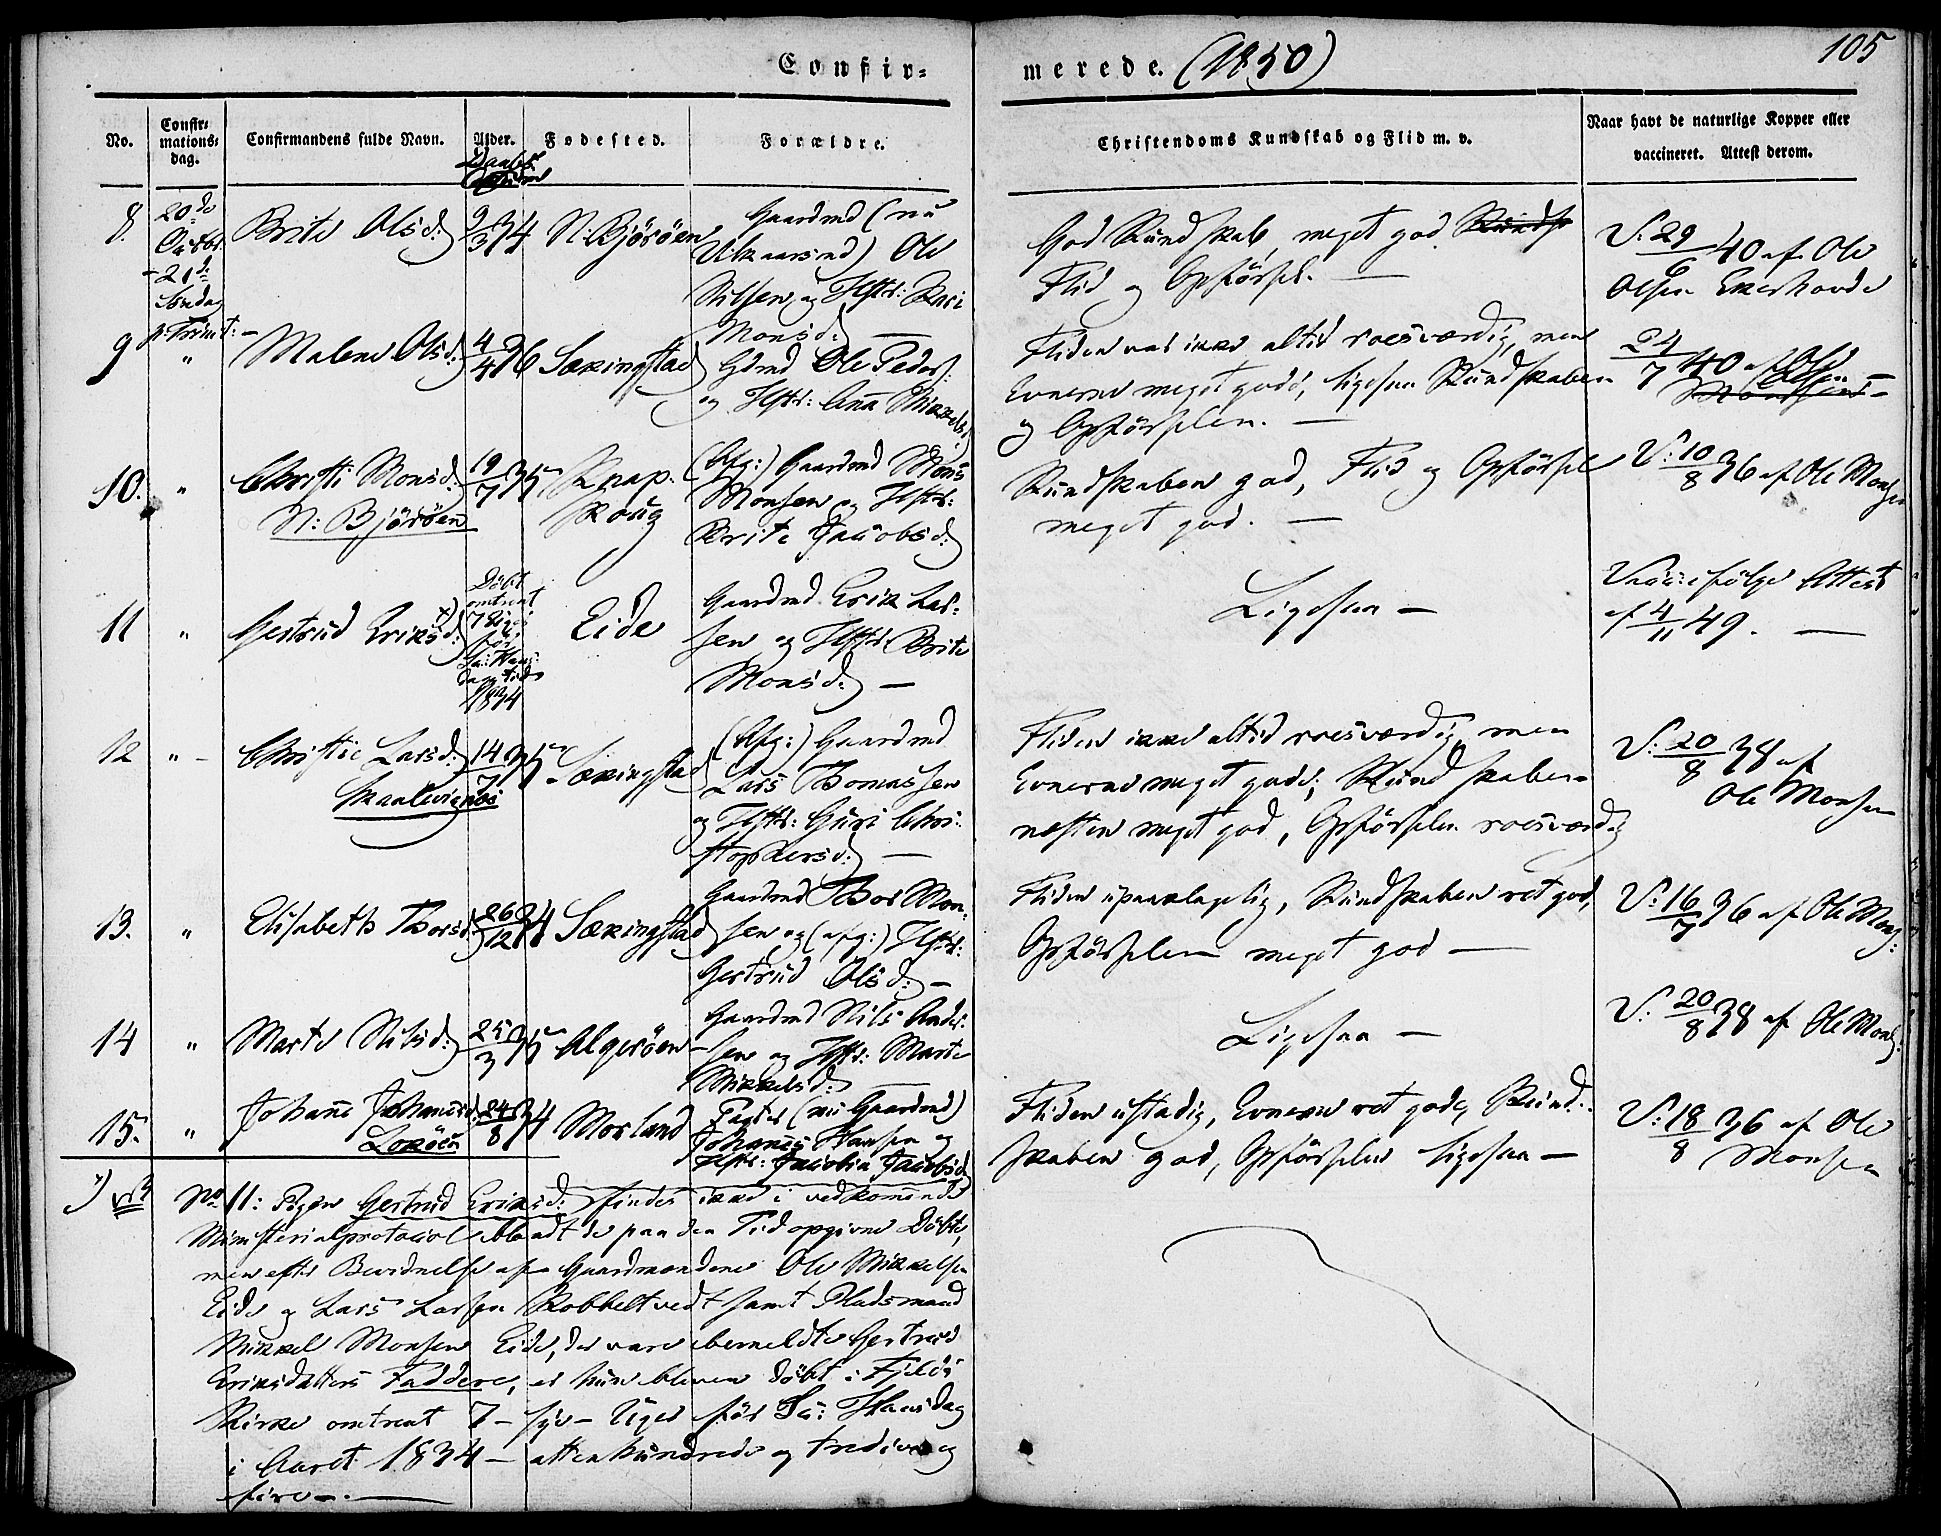 Confir-
merede. (1850)
105
No.
Confir-
mations-
dag.
Confirmandens fulde Navn.
Alder.
Daabs
Fødested.
Forældre.
Christendoms Kundskab og Flid m. v.
Naar havt de naturlige Kopper eller
vaccineret. Attest derom.
8.
20de
Octbr.
- 21de
Søndag
p. Trinit: -
Brite Olsd:
9/3 34
N: Björöen
Gaardmd (nu
Vilkaarsmd) Ole
Nilsen og Hstr: Kari
Monsd: -
God Kundskab, meget god Kundsk
Flid og Opförsel. -
V: 29/6 40 af Ole
Olsen Ekerhovde
9
"
Malene Olsd:
4/4 36
Sækingstad
Gdmd Ole Peders:
og Hstr: Anna Mikkelsd
Fliden var ikke altid roesværdig, men
Evnerne meget gode, ligesaa Kundskaben
og Opförselen. -
24/7 40 af Ole
Olsen -
10.
"
Christi Monsd:
N: Björöen
19/7 35
Knap-
skoug
(Afg:) Gaardmd Mons
Monsen og Hstr:
Brite Jacobsd:
Kundskaben god, Flid og Opförsel
meget god. -
V: 10/8 36 af Ole Monsen
11
"
Gertrud Eriksd: *)
Döbt
omtrent
7 Uger
för
St: Hans
dag tide
1834
Eide
Gaardmd Erik Lar-
sen og Hstr: Brite
Monsd: -
Ligesaa -
Vacc: ifölge Attest
af 4/11 49. -
12
" -
Christie Larsd:
Skaalevignæs
14/7 35
Sækingstad
(Afg:) Gaardmd
Lars Thomassen
og Hstr: Guri Chri-
stophersd: -
Fliden ikke altid roesværdig, men
Evnerne meget gode; Kundskaben
næsten meget god, Opförselen roesværdig
V: 20/8 38 af
Ole Monsen
13.
"
Elisabeth Thorsd:
26/12 34
Sækingstad
Gaardmd Thor Mon-
sen og (afg:) Hstr:
Gertrud Olsd: -
Fliden upaaklagelig, Kundskaben ret god,
Opförselen meget god -
V: 16/7 36 af Ole Mons:
14
"
Marte Nilsd:
25/3 35
Algeröen -
Gaardmd Nils Ander-
sen og Hstr: Marte
Mikkelsd: -
Ligesaa -
V: 20/8 38 af Ole Mons:
15.
"
Johanne Johannesd:
Loköen
24/8 34
Morland
(nu Gaardmd)
Johannes Hansen og
Hstr: Jacobia Jacobsd
Fliden ustadig, Evnerne ret gode, Kund-
skaben god, Opförselen ligesaa -
V: 18/8 36 af Ole
Monsen
*)
No 11: Pigen Gertrud Eriksd: findes ikke i vedkommende
Ministerialprotocol iblandt de paa den Tid opgivne Döbte,
men efter Bevidnelse af Gaardmændene Ole Mikkelsen
Eide og Lars Larsen Kobbeltvedt samt Pladsmand
Mikkel Monsen Eide, der vare bemeldte Gertrud
Eriksdatters Faddere, er hun bleven döbt i Fjelds
Kirke omtrent 7 - syv - Uger för St: Hansdag
i Aaret 1834 - atten hundrede og tredive og
fire -. -